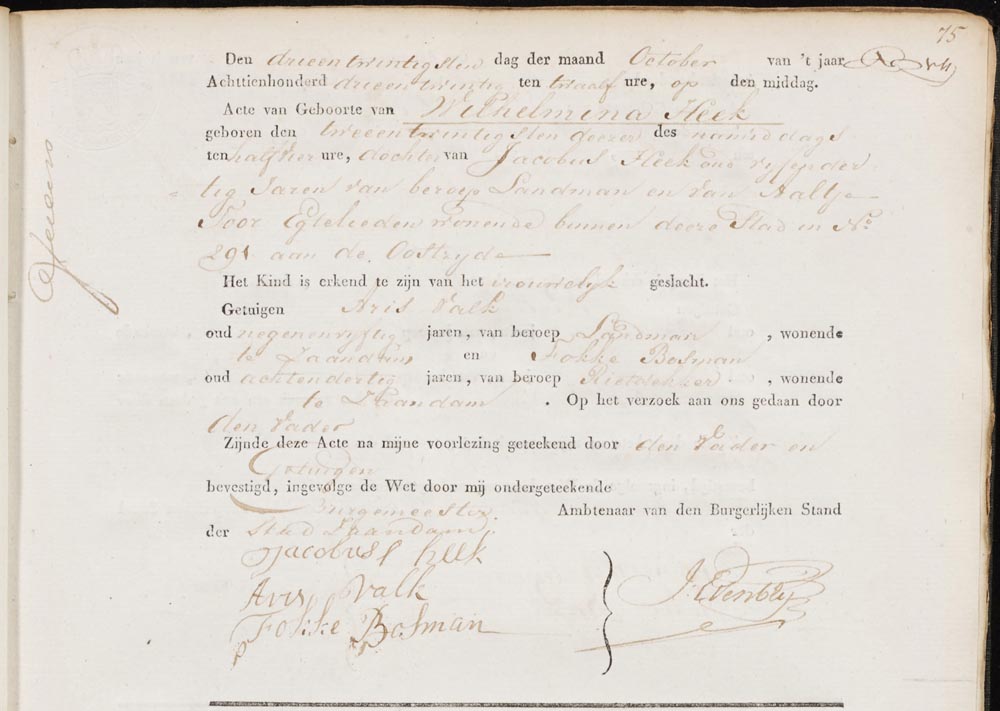 75
Den drieentwintigsten dag der maand October van 't jaar
Achttienhonderd drieentwintig ten twaalf ure, op den middag.
Acte van Geboorte van Wilhelmina Heek
geboren den tweeentwintigsten deezer des namiddags
ten halfvier ure, dochter van Jacobus Heek oud vyfender
tig Jaren van beroep Landman en van Aaltje
Toor Egtelieden wonende binnen deeze Stad in No.
291 aan de Oostzyde
Het Kind is erkend te zijn van het vrouwelyk geslacht.
Getuigen Aris Valk
oud negenenvyftig jaren, van beroep Landman, wonende
te Zaandam en Fokke Bosman
oud achtendertig jaren, van beroep Rietdekker, wonende
te Zaandam. Op het verzoek aan ons gedaan door
den Vader
Zijnde deze Acte na mijne voorlezing geteekend door den Vader en
Getuigen
bevestigd, ingevolge de Wet door mij ondergeteekende
Burgemeester Ambtenaar van den Burgerlijken Stand
der Stad Zaandam.
Jacobus heek
Aris Valk
Fokke Bosman